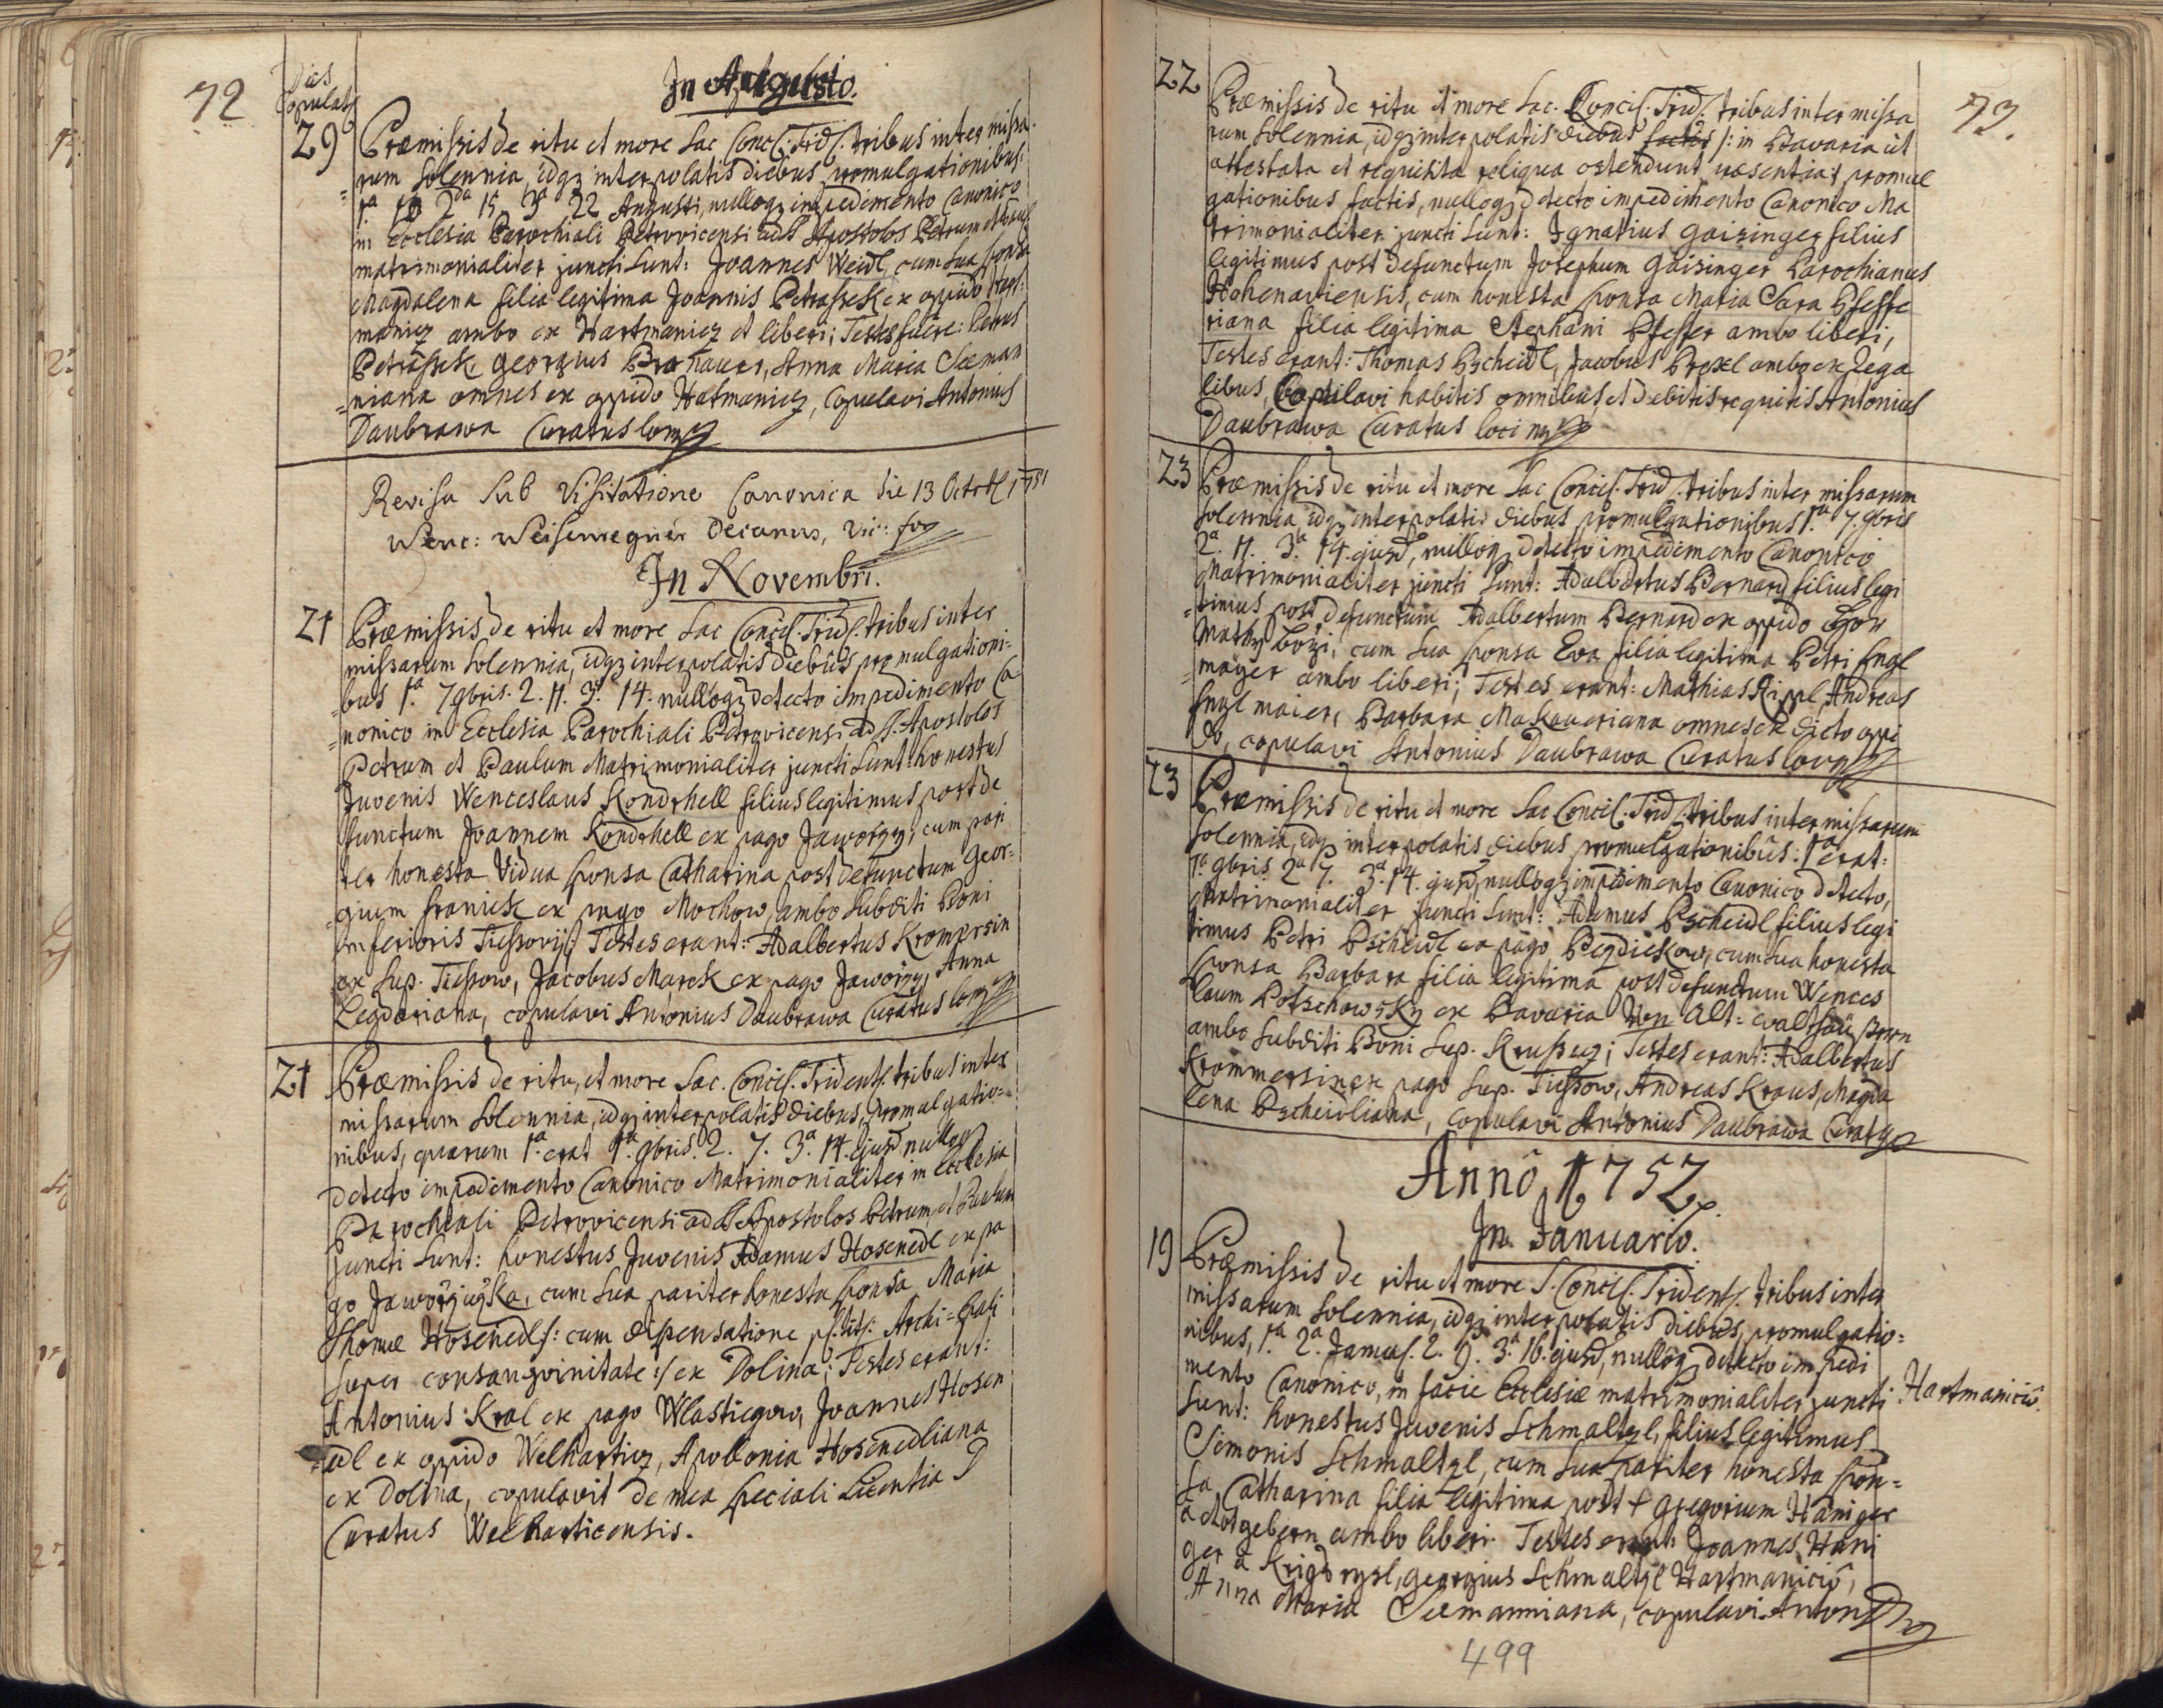 72
Dies
Copulat:
In Augusto.
29 Præmissis de ritu et more Sac Conc: Trid: tribus inter missa-
rum solennia, idq3 interpolatis diebus promulgationibus:
1a 2da 15 3a 22 Augusti, nulloq3 impedimento Canonico
in Ecclesia Parochiali Petrovicensi ad SS Apostolos Petrum et Paul:
matrimonialiter juncti sunt: Joannes Weidl, cum sua sponsa
Magdalena filia legitima Joannis Petrassek ex oppido Hart:
manicz ambo ex Hartmanicz et liberi; Testes fuere: Petrus
Petrassek, Georgius Brahauer, Anna Maria Seeman
niana omnes ex oppido Hatmanicz, Copulavi Antonius
Daubrawa Curatus loci mp
Revisa sub Visitatione Canonica die 13 Octob 1751
Wenc: Weisenregner Decanus, Vic: for
In Novembri.
21 Præmissis de ritu et more Sac Concil. Trid. tribus inter
missarum solennia, idq3 interpolatis diebus promulgationi-
bus 1a. 7 9bris. 2. 11. 3a. 14. nulloq3 detecto impedimento Ca
nonico in Ecclesia Parochiali Petrovicensi ad SS. Apostolos
Petrum et Paulum Matrimonialiter juncti sunt: honestus
Juvenis Wenceslaus Kondrhell filius legitimus post de
functum Joannem Kondrhell ex pago Jaworzy, cum pari
ter honesta Vidua sponsa Catharina post defunctum Geor-
gium Franiek ex pago Mochow, ambo subditi Boni
inferioris Tiessovij; Testes erant: Adalbertus Krompsin
ex sup. Tiessow, Jacobus Marek ex pago Jaworzy, Anna
Legdariana, copulavi Antonius Daubrawa Curatus loci mp
21 Præmissis de ritu, et more Sac. Concil. Trident. tribus inter
missarum solennia, idq3 interpolatis diebus, promulgatio-
nibus, quarum 1a. erat 1a. 9bris. 2. 7. 3a. 14. ejusd, nulloq3
detecto impedimento Canonico Matrimonialiter in Ecclesia
Parochiali Petrovicensi ad SS Apostolos Petrum, et Paulum
juncti sunt: honestus Juvenis Adamus Hosenedl ex pa
go Jaworziczka, cum sua pariter honesta sponsa Maria
Thomæ Hosenedl /: cum dispensatione Archi-Epali
super consangvinitate :/ ex Dolina; Testes erant:
Antonius Kral ex pago Wlastiegow, Joannes Hosen
edl ex oppido Welhartiz, Apollonia Hosenedliana
ex Dolina, copulavit de mea speciali Licentia D
Curatus Welharticensis.
73.
22 Præmissis de ritu et more Sac. Concil. Trid. tribus inter missa
rum solennia, idq3 interpolatis diebus factis /: in Bavaria ut
attestata et requisita reliqua ostendunt præsentia :/ promul
gationibus factis, nulloq3 detecto impedimento Canonico Ma
trimonialiter juncti sunt: Ignatius Gaisinger filius
legitimus post defunctum Josephum Gaisinger Parochianus
Hohenaviensis, cum honesta sponsa Maria Sara Pfeffe
riana filia legitima Stephani Pfeffer ambo liberi,
Testes erant: Thomas Pscheidl, Jacobus Prexl ambo ex Rega
libus, Copulavi habitis omnibus, et debitis requitis Antonius
Daubrawa Curatus loci mp
23 Præmissis de ritu et more Sac Concil. Trid. tribus inter missarum
solennia, idq3 interpolatis diebus promulgationibus 1a. 7. 9bris
2a. 11. 3a. 14. ejusd, nulloq3 detecto impedimento Canonico
Matrimonialiter juncti sunt: Adalbertus Bernard filius legi
timus post defunctum Adalbertum Bernard ex oppido Gor
mathy Bozi, cum sua sponsa Eva filia legitima Petri Engl
mayer ambo liberi; Testes erant: Mathias Rippl, Andreas
Englmaier, Barbara Makaueriana omnes ex dicto oppi
do, copulavi Antonius Daubrawa Curatus loci mp
23 Præmissis de ritu et more Sac Concil. Trid. tribus inter missarum
solennia, idq3 interpolatis diebus promulgationibus: 1a erat:
1a. 9bris 2a 7. 3a. 14. ejusd, nulloq3 impedimento Canonico detecto,
Matrimonialiter juncti sunt: Adamus Pscheidl filius legi
timus Petri Pscheidl ex pago Pezdiekow, cum sua honesta
sponsa Barbara filia legitima post defunctum Wences
laum Potschowsky ex Bavaria Von Alt-
ambo subditi Boni sup. Kruschez; Testes erant: Adalbertus
Krommersin ex pago sup. Tiessow, Andreas Kraus, Magda
lena Pscheidliana, copulavi Antonius Daubrawa Curat mp
Annô 1752.
In Januario.
19 Præmissis de ritu et more S. Concil. Trident. tribus inter
missarum solennia, idq3 interpolatis diebus, promulgatio-
nibus, 1a. 2a. Januar. 2. 9. 3a. 16. ejusd, nulloq3 detecto impedi
mento Canonico, in facie Ecclesiæ matrimonialiter juncti Hartmanicio.
sunt: honestus Juvenis Schmaltzl, filius legitimus
Simonis Schmaltzl, cum sua pariter honesta spon-
sa, Catharina filia legitima post + Gregorium Haniger
à Motgebern ambo liberi. Testes erant: Joannes Hani
ger à Krigsrysl, Georgius Schmaltzl Hartmanicio,
Anna Maria Seemanniana, copulavi Anton D mp
499